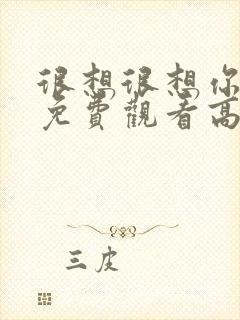 很想很想你
免費觀看高
三皮